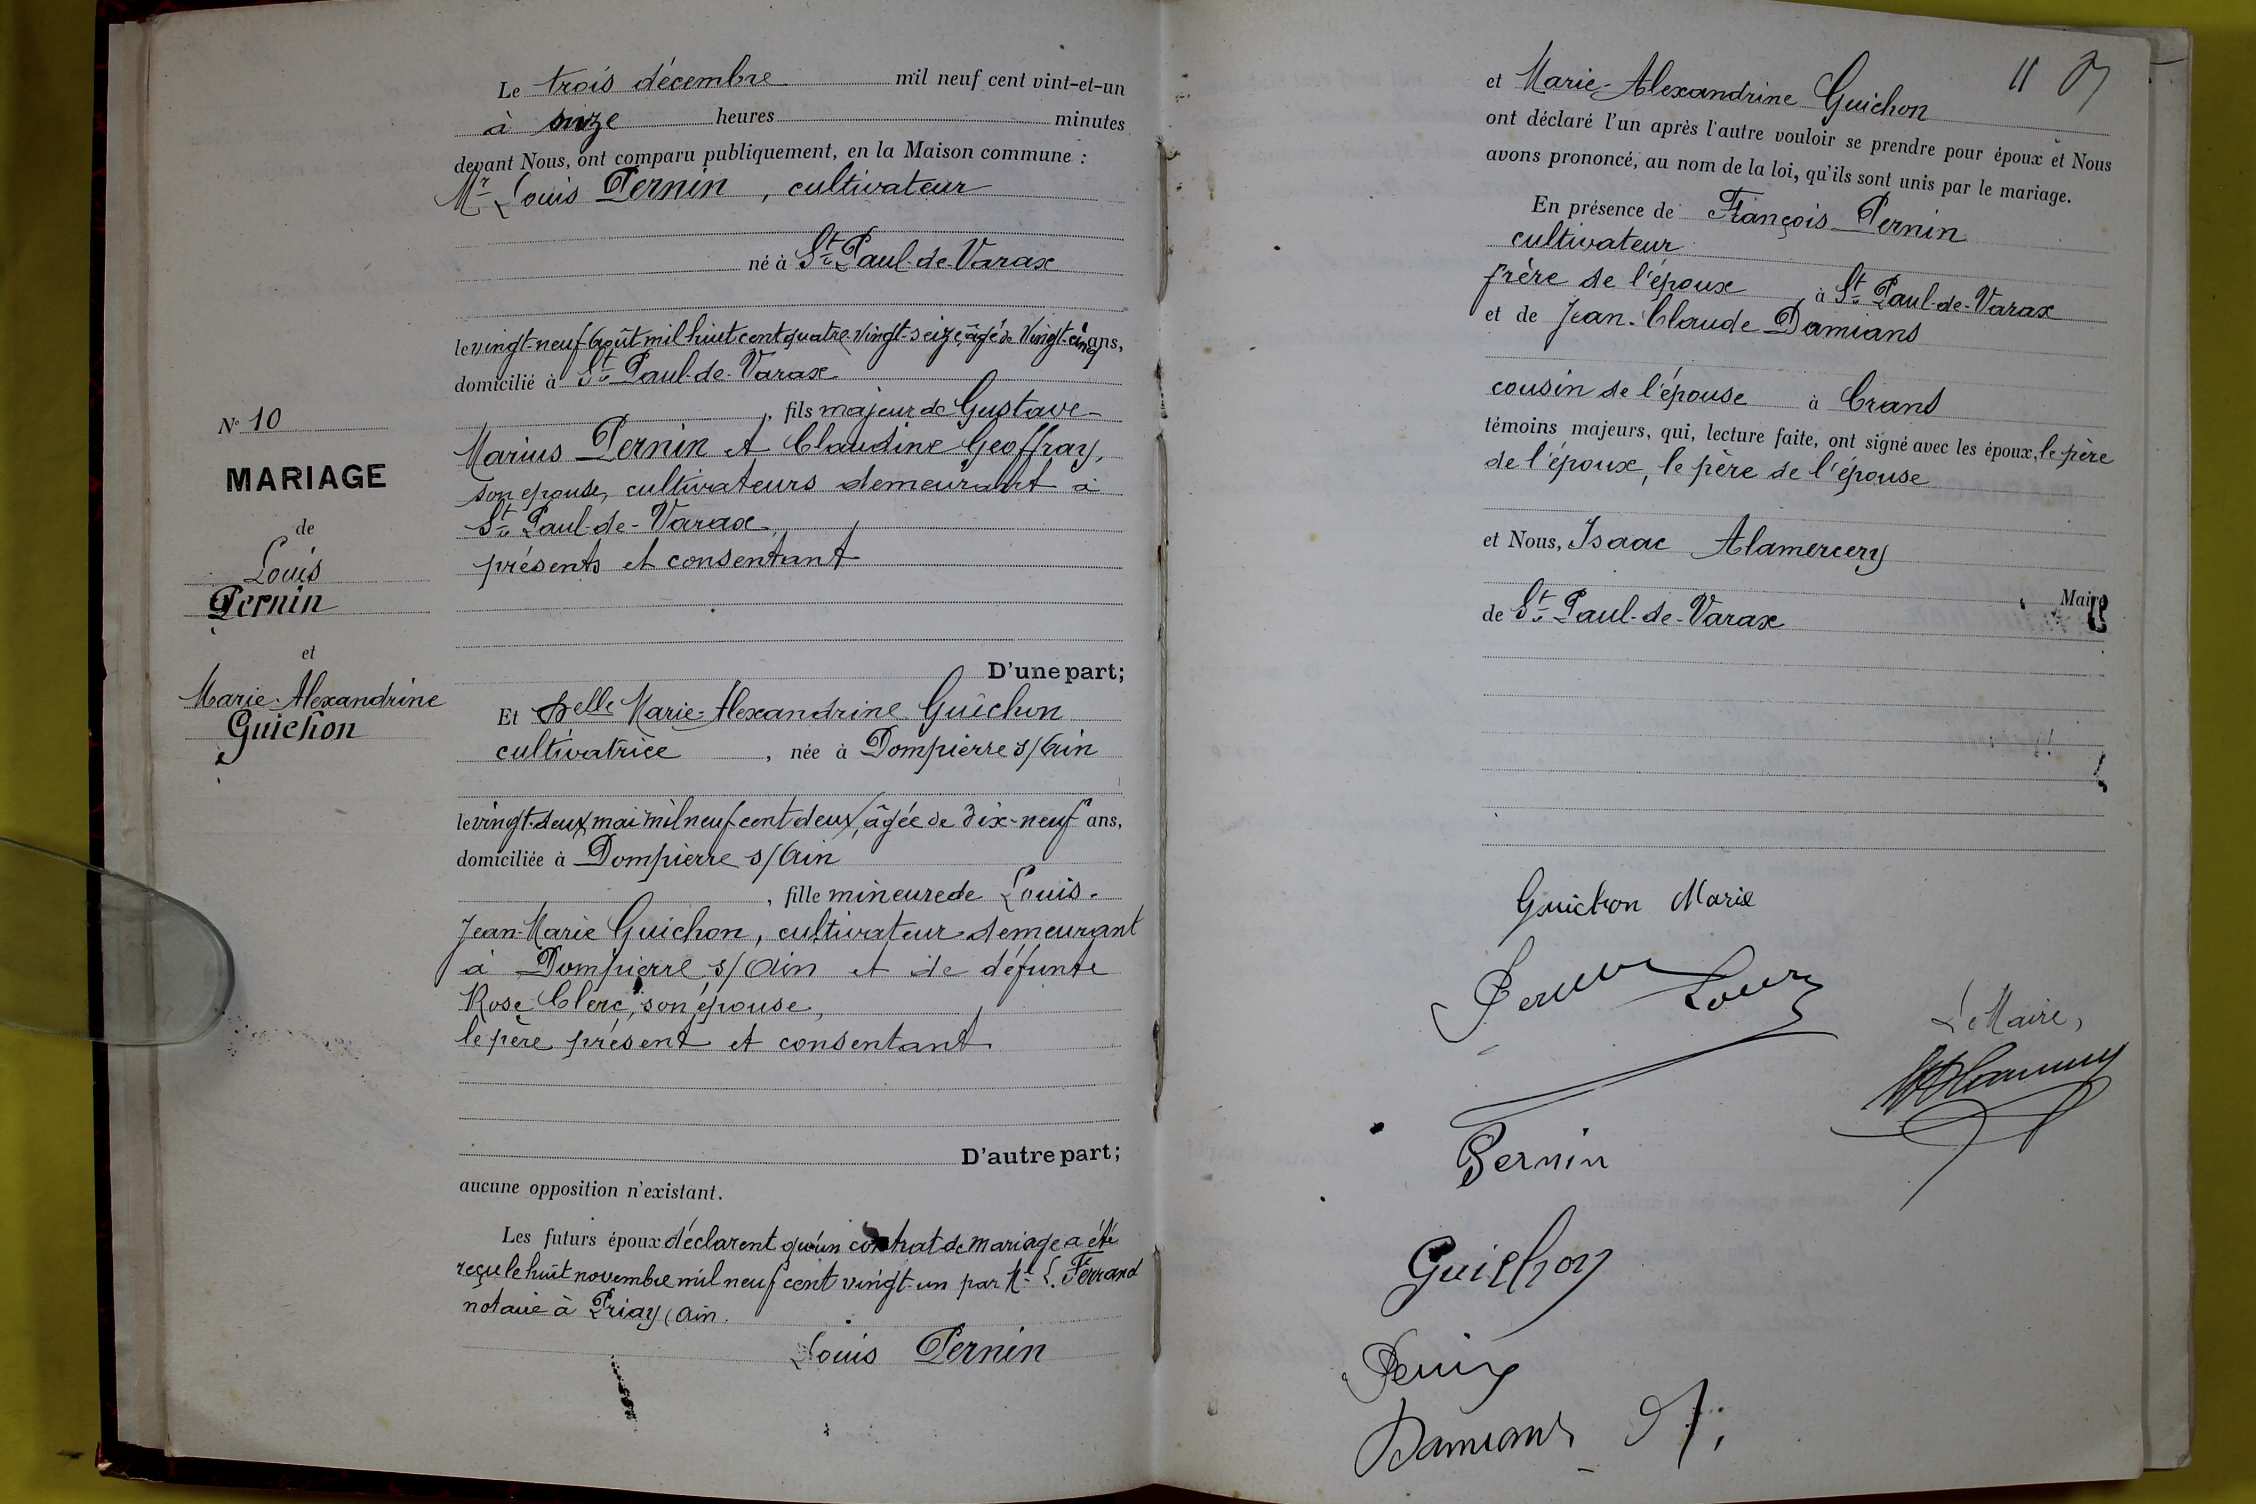 Le trois décembre mil neuf cent vint-et-un
à heures minutes
devant Nous, ont comparu publiquement, en la Maison commune :
Mr Louis Pernin, cultivateur
né à St Paul-de-Varax
le vingt-neuf Août mil huit cent quatre-vingt-seize, âgé de Vingt-cinq ans,
domicilié à St Paul-de-Varax
, fils majeur de Gustave-
Marius Pernin et Claudine Geoffray,
son epouse, cultivateurs demeurant à
St Paul-de-Varax,
présents et consentant
D'une part;
N° 10
MARIAGE
de
Louis
Pernin
et
Marie-Alexandrine
Guichon
Et Delle Marie-Alexandrine Guichon
cultivatrice, née à Dompierre s/Ain
le vingt-deux mai mil neuf cent deux, âgée de dix-neuf ans,
domiciliée à Dompierre s/Ain
, fille mineure de Louis-
Jean-Marie Guichon, cultivateur demeurant
à Dompierre s/Ain et de défunte
Rose Clerc, son épouse,
le père présent et consentant
D'autre part;
aucune opposition n'existant.
Les futurs époux déclarent qu'un contrat de mariage a été
reçu le huit novembre mil neuf cent vingt-un par Me L. Ferrand
notaire à Priay (Ain.
Louis Pernin
11
et Marie-Alexandrine Guichon
ont déclaré l'un après l'autre vouloir se prendre pour époux et Nous
avons prononcé, au nom de la loi, qu'ils sont unis par le mariage.
En présence de François Pernin
cultivateur
frère de l'époux à St Paul-de-Varax
et de Jean-Claude Damians
cousin de l'épouse à Crans
témoins majeurs, qui, lecture faite, ont signé avec les époux, le père
de l'époux, le père de l'épouse
et Nous, Isaac Alamercery
Maire
de St Paul-de-Varax
Guichon Marie
Pernin Louis
Le Maire,
Pernin
Guichon
Pernin
Damians